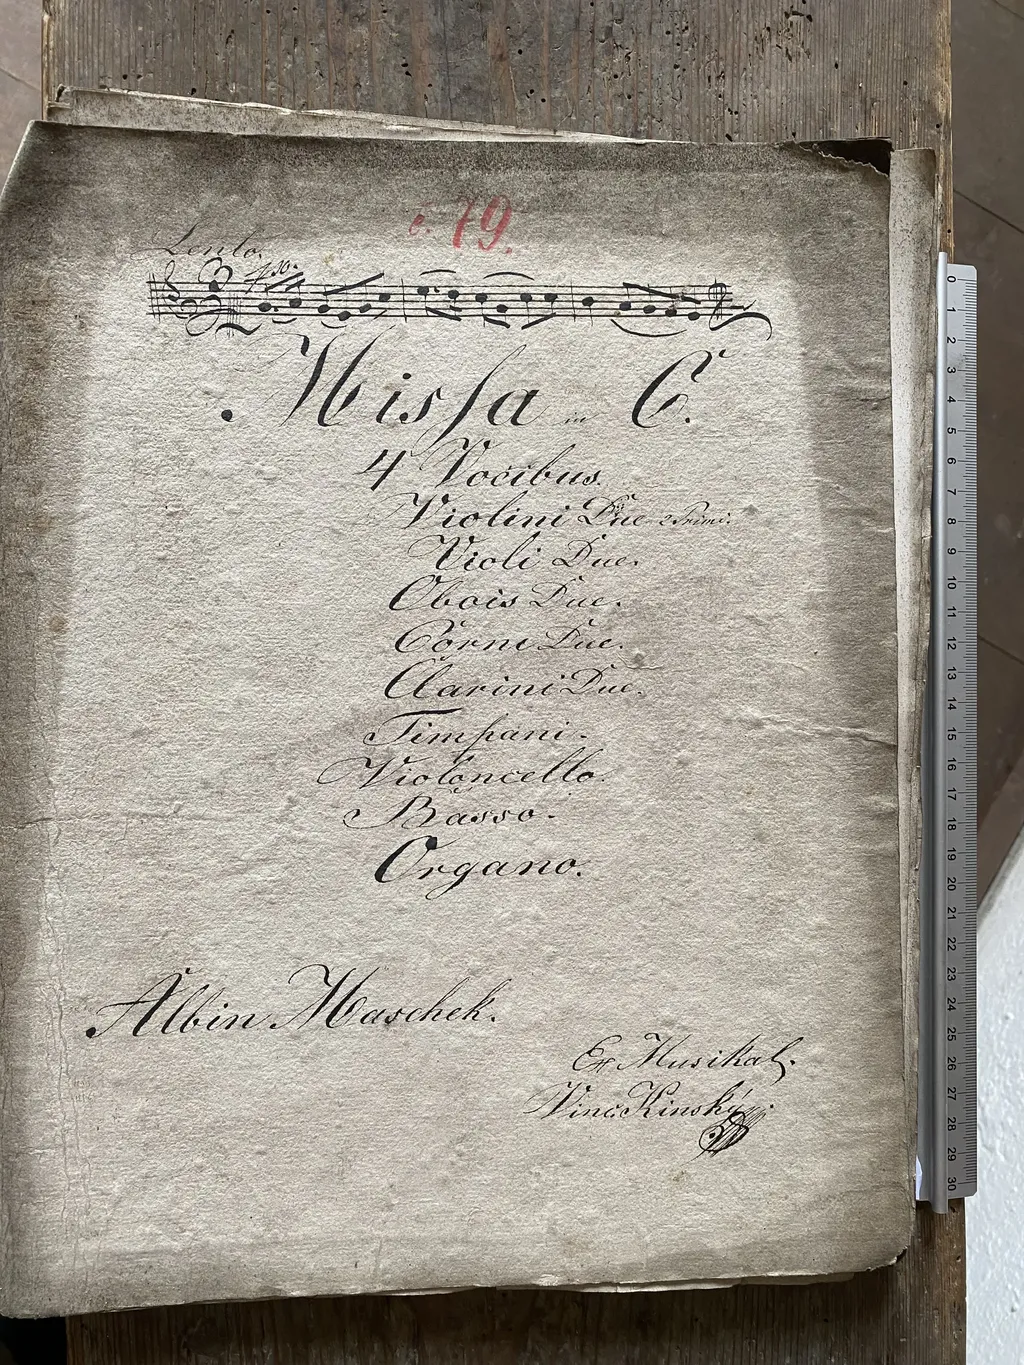 č. 79.
Lento.
Missa in C.
4 Vocibus.
Violini Due 2 Primi.
Violi Due.
Obois Due.
Corni Due.
Clarini Due.
Timpani.
Violoncello.
Basso.
Organo.
Albin Maschek.
Ex Musikal.
Vinc Kinský
0 1 2 3 4 5 6 7 8 9 10 11 12 13 14 15 16 17 18 19 20 21 22 23 24 25 26 27 28 29 30